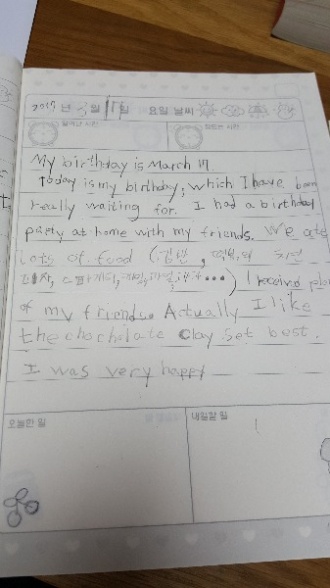 2017년 3월 17일 요일 날씨
My birthday is March 17.
Today is my birthday, which I have been
really waiting for. I had a birthday
party at home with my friends. We ate
lots of food (김밥, 치킨,
피자, 스파게티, 과일, ...) I received
of my friend. Actually I like
the chocholate clay set best.
I was very happy
오늘한 일 내일할 일